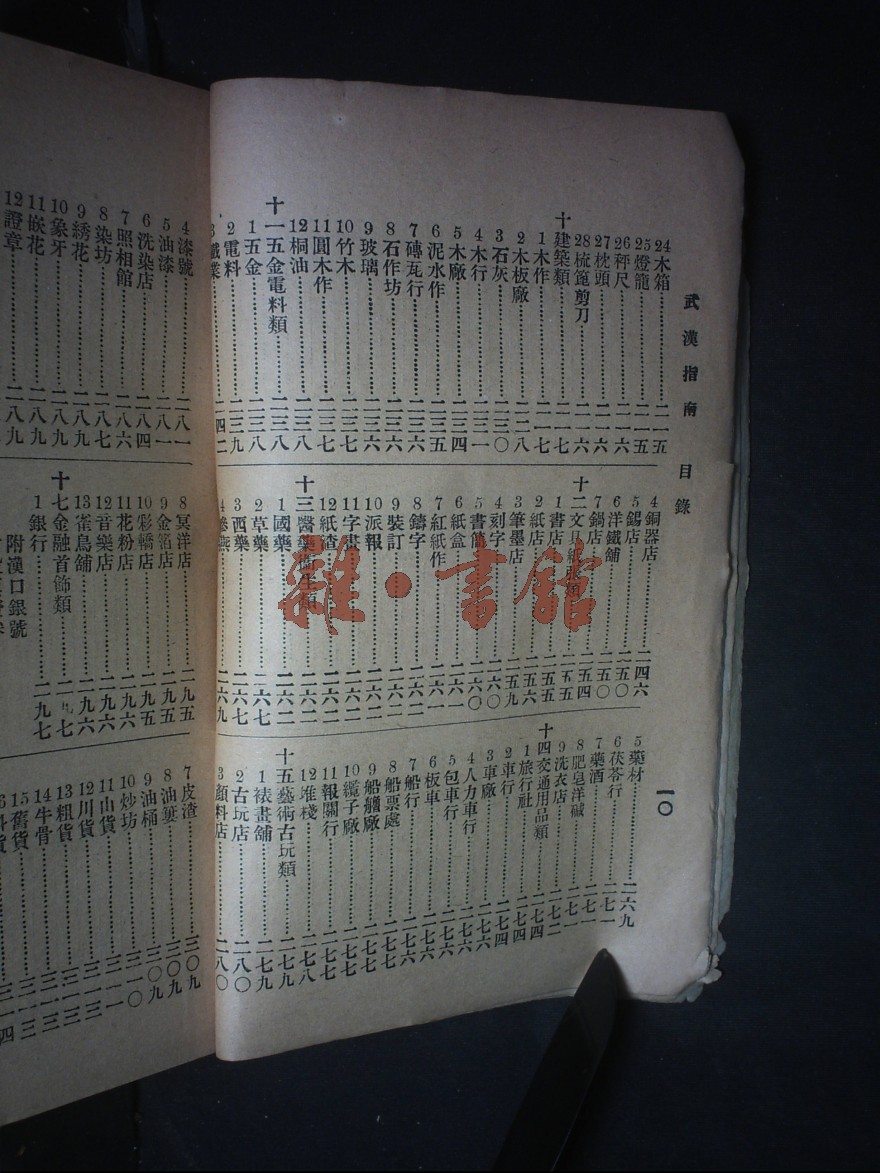 武漢指南 目錄
一〇
24木箱 二一五
25燈籠 二一五
26秤尺 二一六
27枕頭 二一六
28梳篦剪刀 二一六
十 建築類 二一七
1木作 二一七
2木板廠 二二八
3石灰 二三〇
4木行 二三一
5木廠 二三四
6泥水作 二三五
7磚瓦行 二三六
8石作坊 二三六
9玻璃 二三六
10竹木 二三七
11圓木作 二三七
12桐油 二三八
十一 五金電料類 二三八
1五金 二三八
2電料 二三九
4銅器店 二四六
5錫店 二五〇
6洋鐵舖
7鍋店 二五〇
十二 文具紙張類 二五四
1書店 二五五
2紙店 二五六
3筆墨店 二五九
4刻字 二六〇
5書簡 二六〇
6紙盒 二六一
7紅紙作 二六一
8鑄字 二六二
9裝訂 二六二
10派報 二六二
11字畫 二六二
12紙渣 二六二
十三 醫藥衛生類
1國藥 二六二
2草藥 二六七
3西藥 二六七
4參燕 二六九
5藥材 二六九
6茯苓行 二七一
7藥酒 二七一
8肥皂洋碱 二七一
9洗衣店 二七二
十四 交通用品類 二七四
1旅行社 二七四
2車行 二七四
3車廠 二七六
4人力車行 二七六
5包車行 二七六
6板車 二七六
7船行 二七六
8船票處 二七七
9船艙廠 二七七
10纜子廠 二七七
11報關行 二七七
12堆棧 二七八
十五 藝術古玩類 二七九
1裱畫舖 二七九
2古玩店 二八〇
3顏料店 二八〇
4漆號 二八一
5油漆 二八一
6洗染店 二八四
7照相館 二八六
8染坊 二八七
9綉花 二八九
10象牙 二八九
11嵌花 二八九
12證章 二八九
8冥洋店 二九五
9金箔店 二九五
10彩轎店 二九五
11花粉店 二九六
12音樂店 二九六
13雀鳥舖 二九六
十七 金融首飾類 二九七
1銀行 二九七
附漢口銀號
7皮渣 三〇九
8油簍 三〇九
9油桶 三〇九
10炒坊 三一〇
11山貨 三一一
12川貨 三一三
13粗貨 三一三
14牛骨
15舊貨
雜·書館